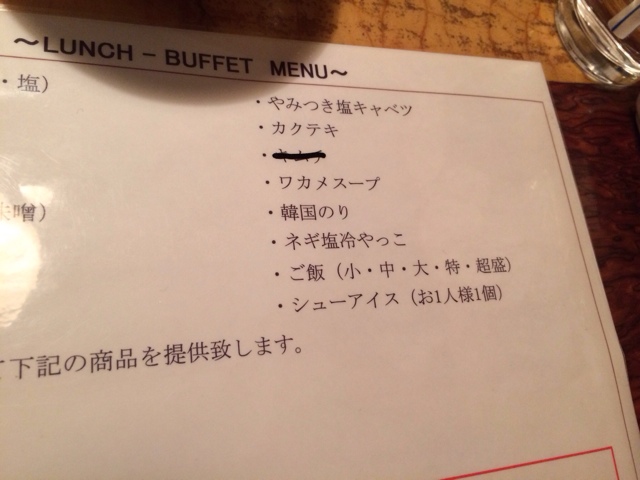 ～LUNCH－BUFFET MENU～
・塩）
・やみつき塩キャベツ
・カクテキ
・ワカメスープ
噌）
・韓国のり
・ネギ塩冷やっこ
・ご飯（小・中・大・特・超盛）
・シューアイス（お1人様1個）
下記の商品を提供致します。